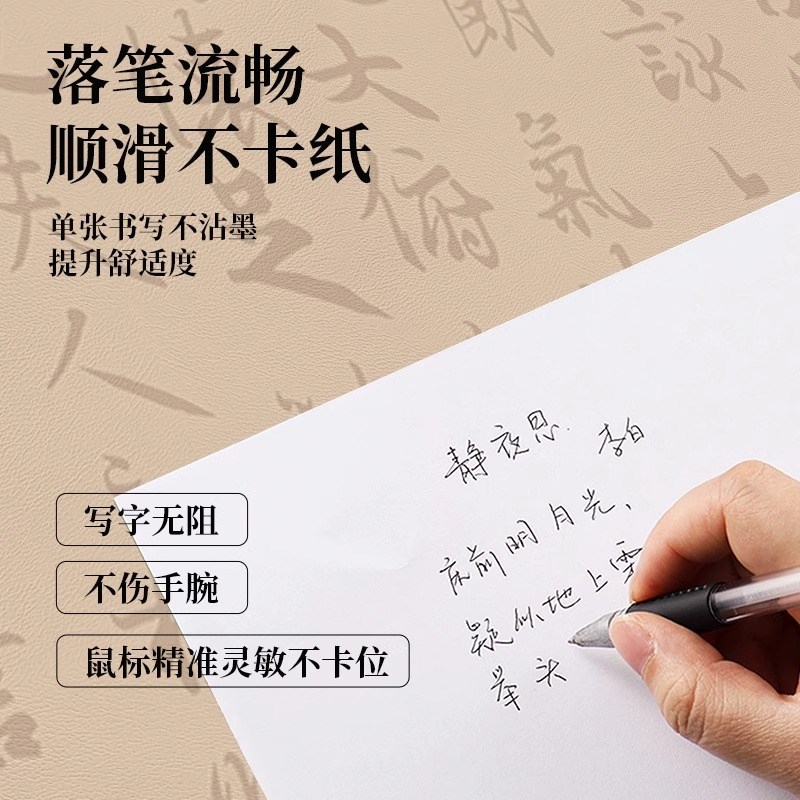 落笔流畅
顺滑不卡纸
单张书写不沾墨
提升舒适度
写字无阻
不伤手腕
鼠标精准灵敏不卡位
静夜思 李白
床前明月光，
疑似地上霜
举头
大
人
氣